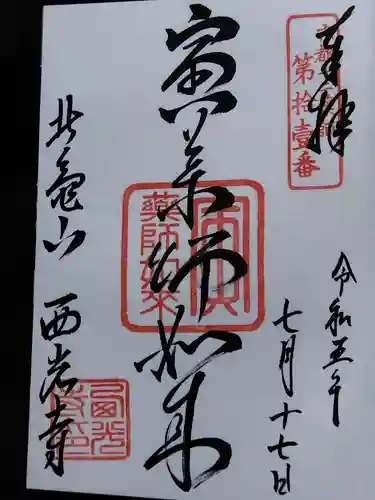 奉拝
第拾壹番
令和五年
七月十七日
寅薬師如来
薬師如来
北亀山 西岩寺